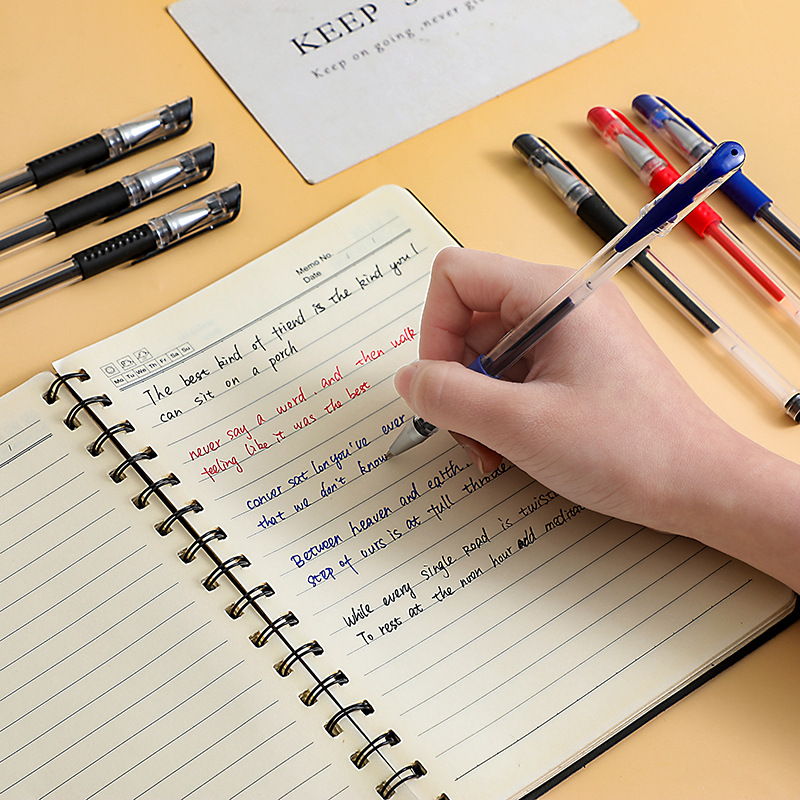 KEEP
Keep on going never gi
Memo No.
Date / /
Mo Tu We Th Fr Sa Su
The best kind of friend is the kind you!
can sit on a porch
never say a word. and then walk
feeling like it was the best
conver sat lon you've ever
that we don't know
Between heaven and earth.
step of ours is at full throttle
While every single Road is twist
To rest at the noon hour add medita